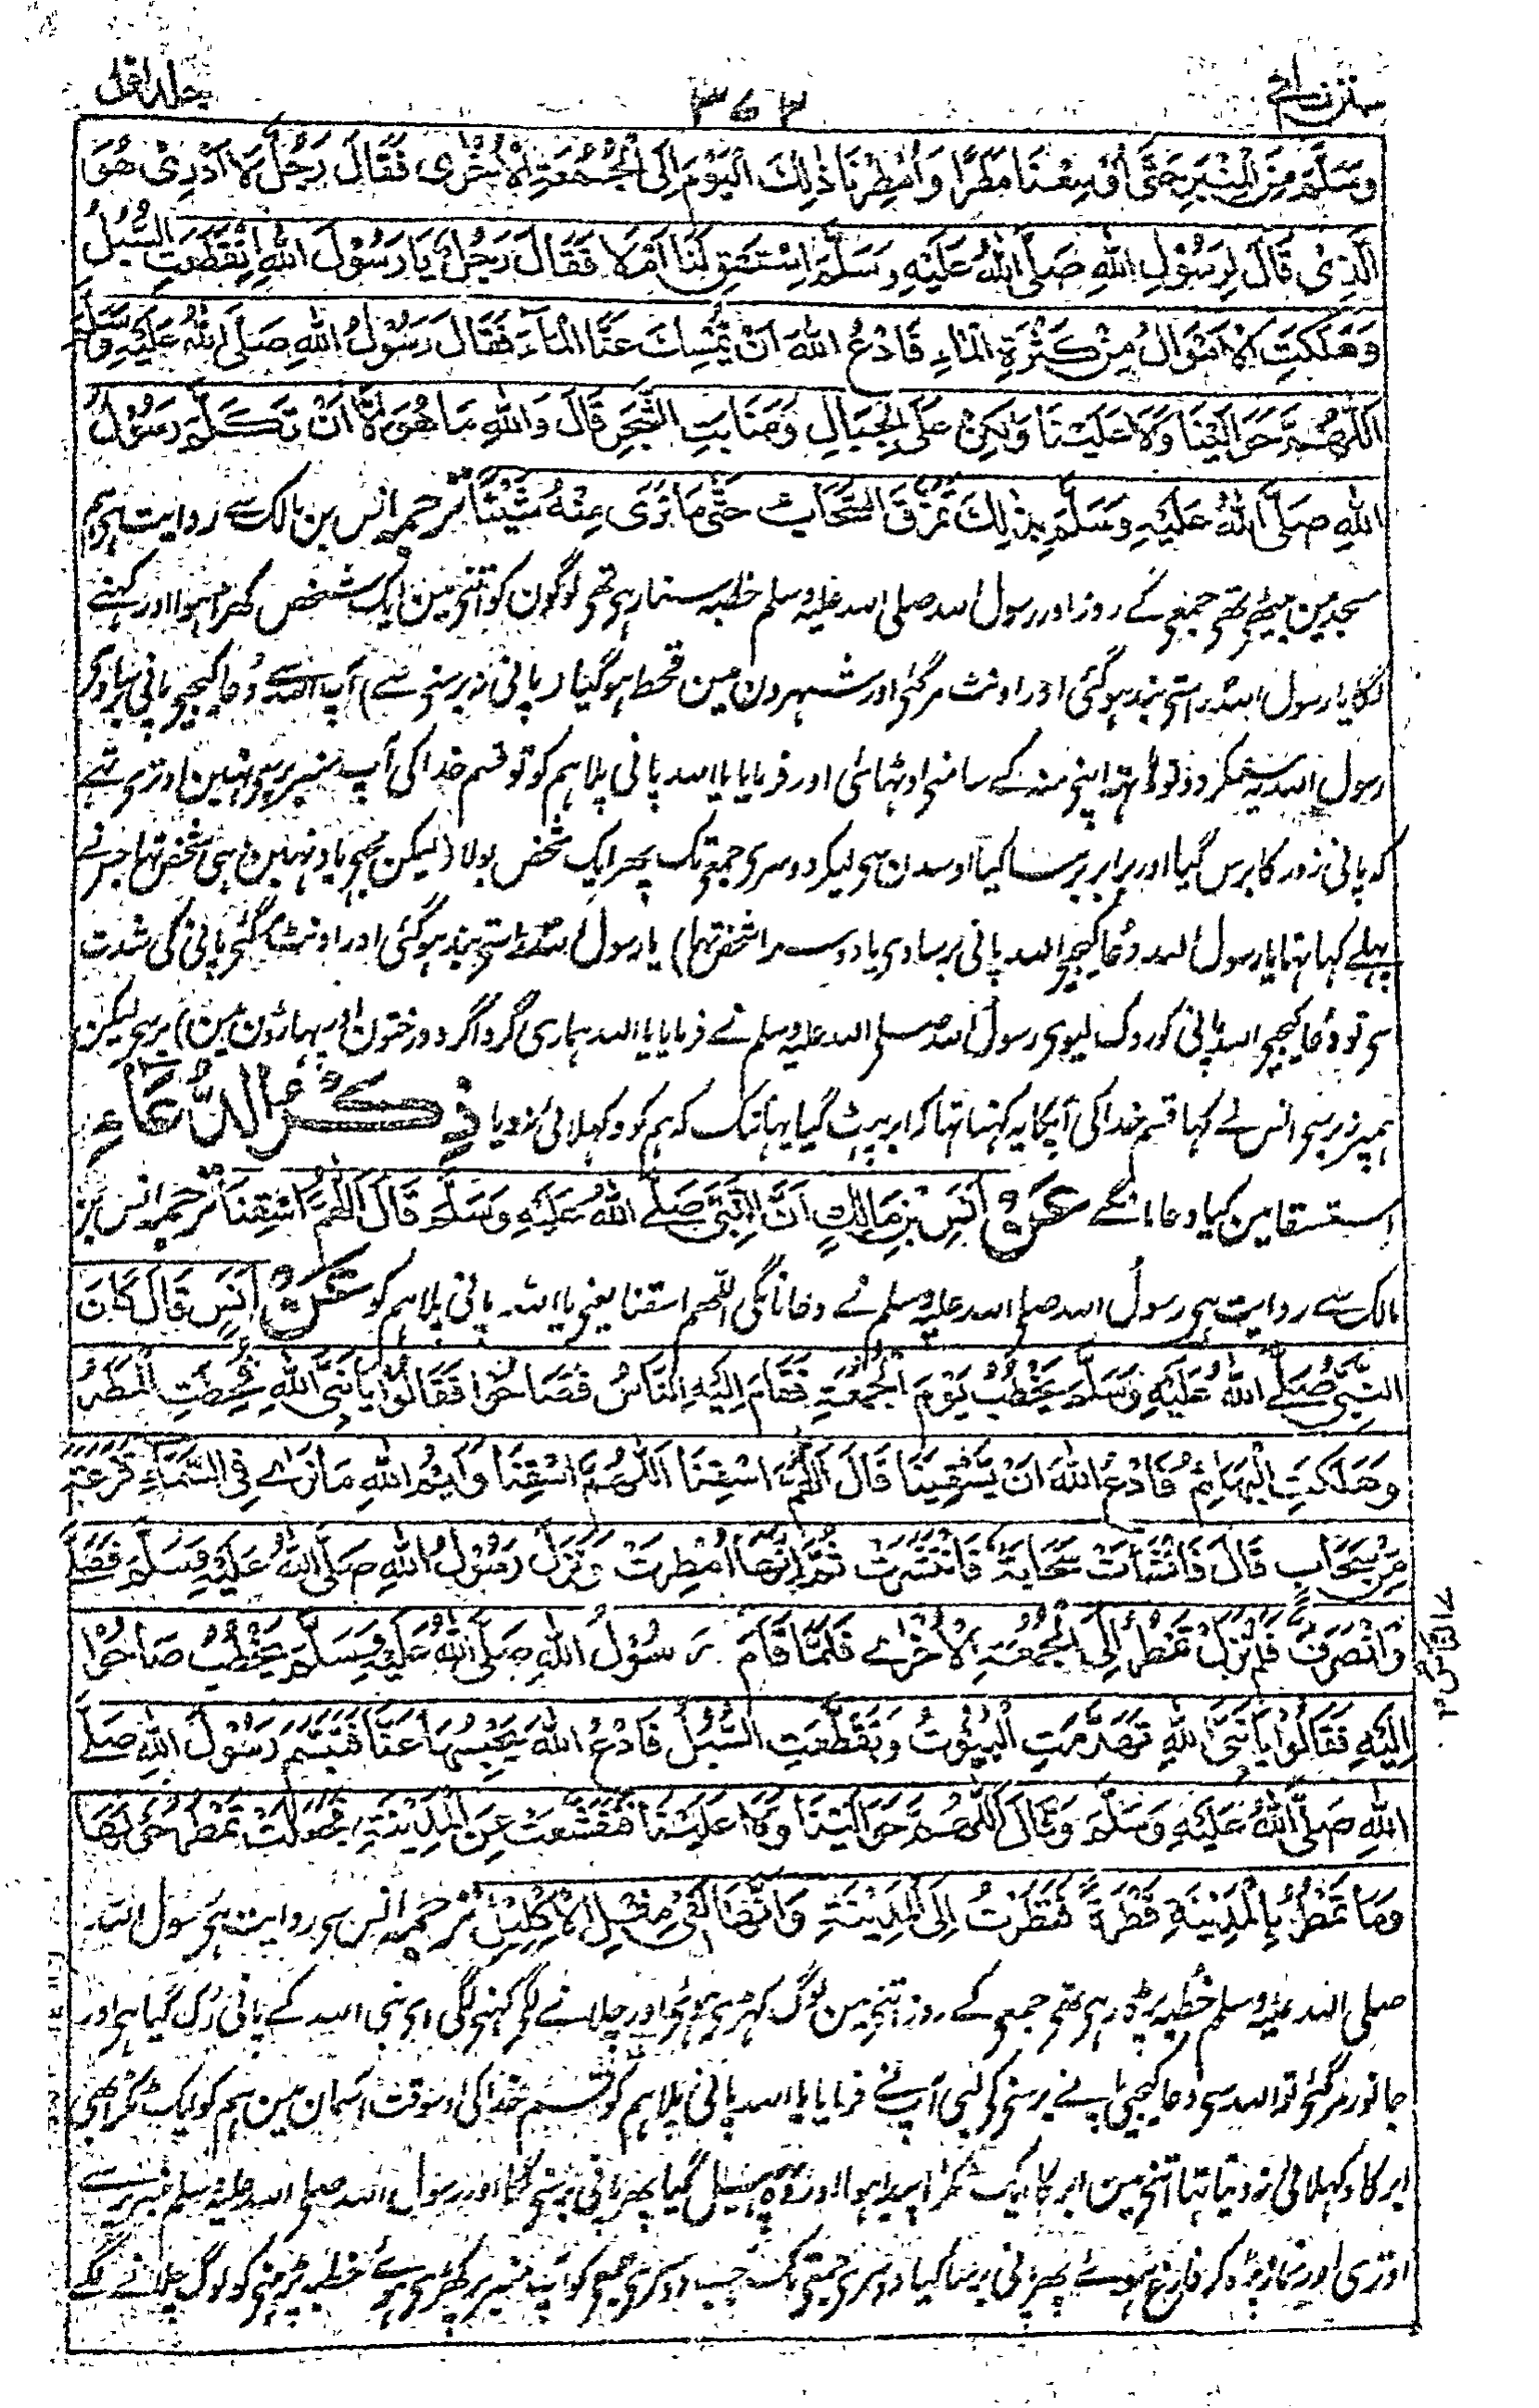 جلد اول
۳۶۲
وَسَلَّمَ مِنَ الْمِنْبَرِ حَتّٰى أُوْسِعْنَا مَطَرًا وَاُمْطِرْنَا ذٰلِكَ الْيَوْمَ اِلَى الْجُمُعَةِ الْاُخْرٰى فَقَالَ رَجُلٌ لَا اَدْرِىْ هُوَ
الَّذِىْ قَالَ لِرَسُوْلِ اللهِ صَلَّى اللهُ عَلَيْهِ وَسَلَّمَ اِسْتَسْقِ لَنَا اَمْ لَا فَقَالَ رَجُلٌ يَا رَسُوْلَ اللهِ اِنْقَطَعَتِ السُّبُلُ
وَهَلَكَتِ الْاَمْوَالُ مِنْ كَثْرَةِ الْمَاءِ فَادْعُ اللهَ اَنْ يُّمْسِكَ عَنَّا الْمَاءَ فَقَالَ رَسُوْلُ اللهِ صَلَّى اللهُ عَلَيْهِ وَسَلَّمَ
اَللّٰهُمَّ حَوَالَيْنَا وَلَا عَلَيْنَا وَلٰكِنْ عَلَى الْجِبَالِ وَمَنَابِتِ الشَّجَرِ قَالَ وَاللهِ مَا هُوَ اِلَّا اَنْ تَكَلَّمَ رَسُوْلُ
اللهِ صَلَّى اللهُ عَلَيْهِ وَسَلَّمَ بِذٰلِكَ تَمَزَّقَ السَّحَابُ حَتّٰى مَا نَرٰى مِنْهُ شَيْئًا ترجمہ انس بن مالک سے روایت ہی ہم
مسجد مین بیٹھے تھی جمعی کے روز اور رسول اللہ صلی اللہ علیہ وسلم خطبہ سنا رہی تھی لوگون کو اتنی مین ایک شخص کھڑا ہوا اور کہنے
لگا یا رسول اللہ راستی بند ہو گئی اور اونٹ مر گئی اور شہرون مین قحط ہو گیا (پانی نہ برسنی سے) آپ اللہ سے دُعا کیجیے پانی برساوی
رسول اللہ یہ سنکر دونو ہاتھ اپنی منہ کے سامنی اوٹھائی اور فرمایا یا اللہ پانی پلا ہم کو تو قسم خدا کی آپ منبر پر سی نہین اوتری تھے
کہ پانی زور کا برس گیا اور برابر برسا کیا اوسدن سی لیکر دوسری جمعی تک پھر ایک شخص بولا (لیکن مجھی یاد نہین وہی شخص تھا جس نے
پہلے کہا تھا یا رسول اللہ دُعا کیجیے اللہ پانی برساوی یا دوسرا شخص تھا) یا رسول اللہ راستی بند ہو گئی اور اونٹ مر گئے پانی کی شدت
سی تو دُعا کیجیے اللہ پانی کو روک لیوی رسول اللہ صلی اللہ علیہ وسلم نے فرمایا یا اللہ ہماری گرداگرد درختون اور پہاڑون مین) برسے لیکن
ہمپر نہ برسی انس نے کہا قسم خدا کی آپکا یہ کہنا تھا کہ ابر پھٹ گیا یہانتک کہ ہم کو دکھلائی نہ دیا ذِكْرُ الدُّعَاءِ
استسقا مین کیا دعا مانگے عَنْ اَنَسِ بْنِ مَالِكٍ اَنَّ النَّبِىَّ صَلَّى اللهُ عَلَيْهِ وَسَلَّمَ قَالَ اَللّٰهُمَّ اسْقِنَا ترجمہ انس بن
مالک سے روایت ہی رسول اللہ صلی اللہ علیہ وسلم نے دعا مانگی اللّٰھم اسقنا یعنی یا اللہ پانی پلا ہم کو عَنْ اَنَسٍ قَالَ كَانَ
النَّبِىُّ صَلَّى اللهُ عَلَيْهِ وَسَلَّمَ يَخْطُبُ يَوْمَ الْجُمُعَةِ فَقَامَ اِلَيْهِ النَّاسُ فَصَاحُوْا فَقَالُوْا يَا نَبِىَّ اللهِ قُحِطَتِ الْمَطَرُ
وَهَلَكَتِ الْبَهَائِمُ فَادْعُ اللهَ اَنْ يَّسْقِيَنَا قَالَ اَللّٰهُمَّ اسْقِنَا اَللّٰهُمَّ اسْقِنَا وَاَيْمُ اللهِ مَا نَرٰى فِى السَّمَاءِ قَزَعَةً
مِنْ سَحَابٍ قَالَ فَانْشَأَتْ سَحَابَةٌ فَانْتَشَرَتْ ثُمَّ اِنَّهَا اُمْطِرَتْ وَنَزَلَ رَسُوْلُ اللهِ صَلَّى اللهُ عَلَيْهِ وَسَلَّمَ فَصَلّٰى
وَانْصَرَفَ فَلَمْ تَزَلْ تَمْطُرُ اِلَى الْجُمُعَةِ الْاُخْرٰى فَلَمَّا قَامَ رَسُوْلُ اللهِ صَلَّى اللهُ عَلَيْهِ وَسَلَّمَ يَخْطُبُ صَاحُوْا
اِلَيْهِ فَقَالُوْا يَا نَبِىَّ اللهِ تَهَدَّمَتِ الْبُيُوْتُ وَتَقَطَّعَتِ السُّبُلُ فَادْعُ اللهَ يَحْبِسُهَا عَنَّا فَتَبَسَّمَ رَسُوْلُ اللهِ صَلَّى
اللهِ صَلَّى اللهُ عَلَيْهِ وَسَلَّمَ وَقَالَ اَللّٰهُمَّ حَوَالَيْنَا وَلَا عَلَيْنَا فَتَقَشَّعَتْ عَنِ الْمَدِيْنَةِ فَجَعَلَتْ تَمْطُرُ حَوْلَهَا
وَمَا تَمْطُرُ بِالْمَدِيْنَةِ قَطْرَةً فَنَظَرْتُ اِلَى الْمَدِيْنَةِ وَاِنَّهَا لَفِىْ مِثْلِ الْاِكْلِيْلِ ترجمہ انس سی روایت ہی رسول اللہ
صلی اللہ علیہ وسلم خطبہ پڑہ رہی تھی جمعی کے روز اتنی مین لوگ کہڑی ہوئی اور چلانے لگی کہنی لگی ای نبی اللہ کے پانی رک گیا ہی اور
جانور مر گئی تو اللہ سی دعا کیجیی پانے برسنی کی لیی آپنے فرمایا یا اللہ پانی پلا ہم کو قسم خدا کی اوسوقت اسمان مین ہم کو ایک ٹکڑا بھی
ابر کا دکہلائی نہ دیتا تہا اتنی مین ابر کا ایک ٹکڑا پیدا ہوا اور وہ پھیل گیا پھر پانی برسنی لگا اور رسول اللہ صلی اللہ علیہ وسلم منبر پر سے
اوتری اور نماز پڑہ کر فارغ ہوئے پھر پانی برسا کیا دوسری جمعی تک جب دوسری جمعی کو آپ منبر پر کھڑی ہوئے خطبہ پڑہنی کو لوگ چلانے لگے